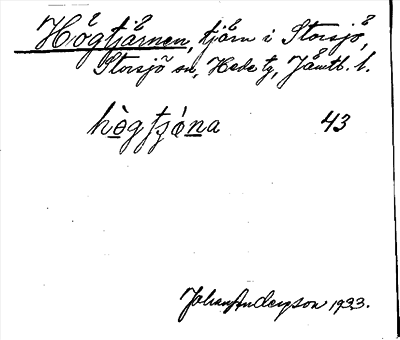 Högtjärnen, tjärn i Storsjö,
Storsjö sn, Hede tg, Jämtl. l.
hògtʒóna 43
Johan Anderson 1933.